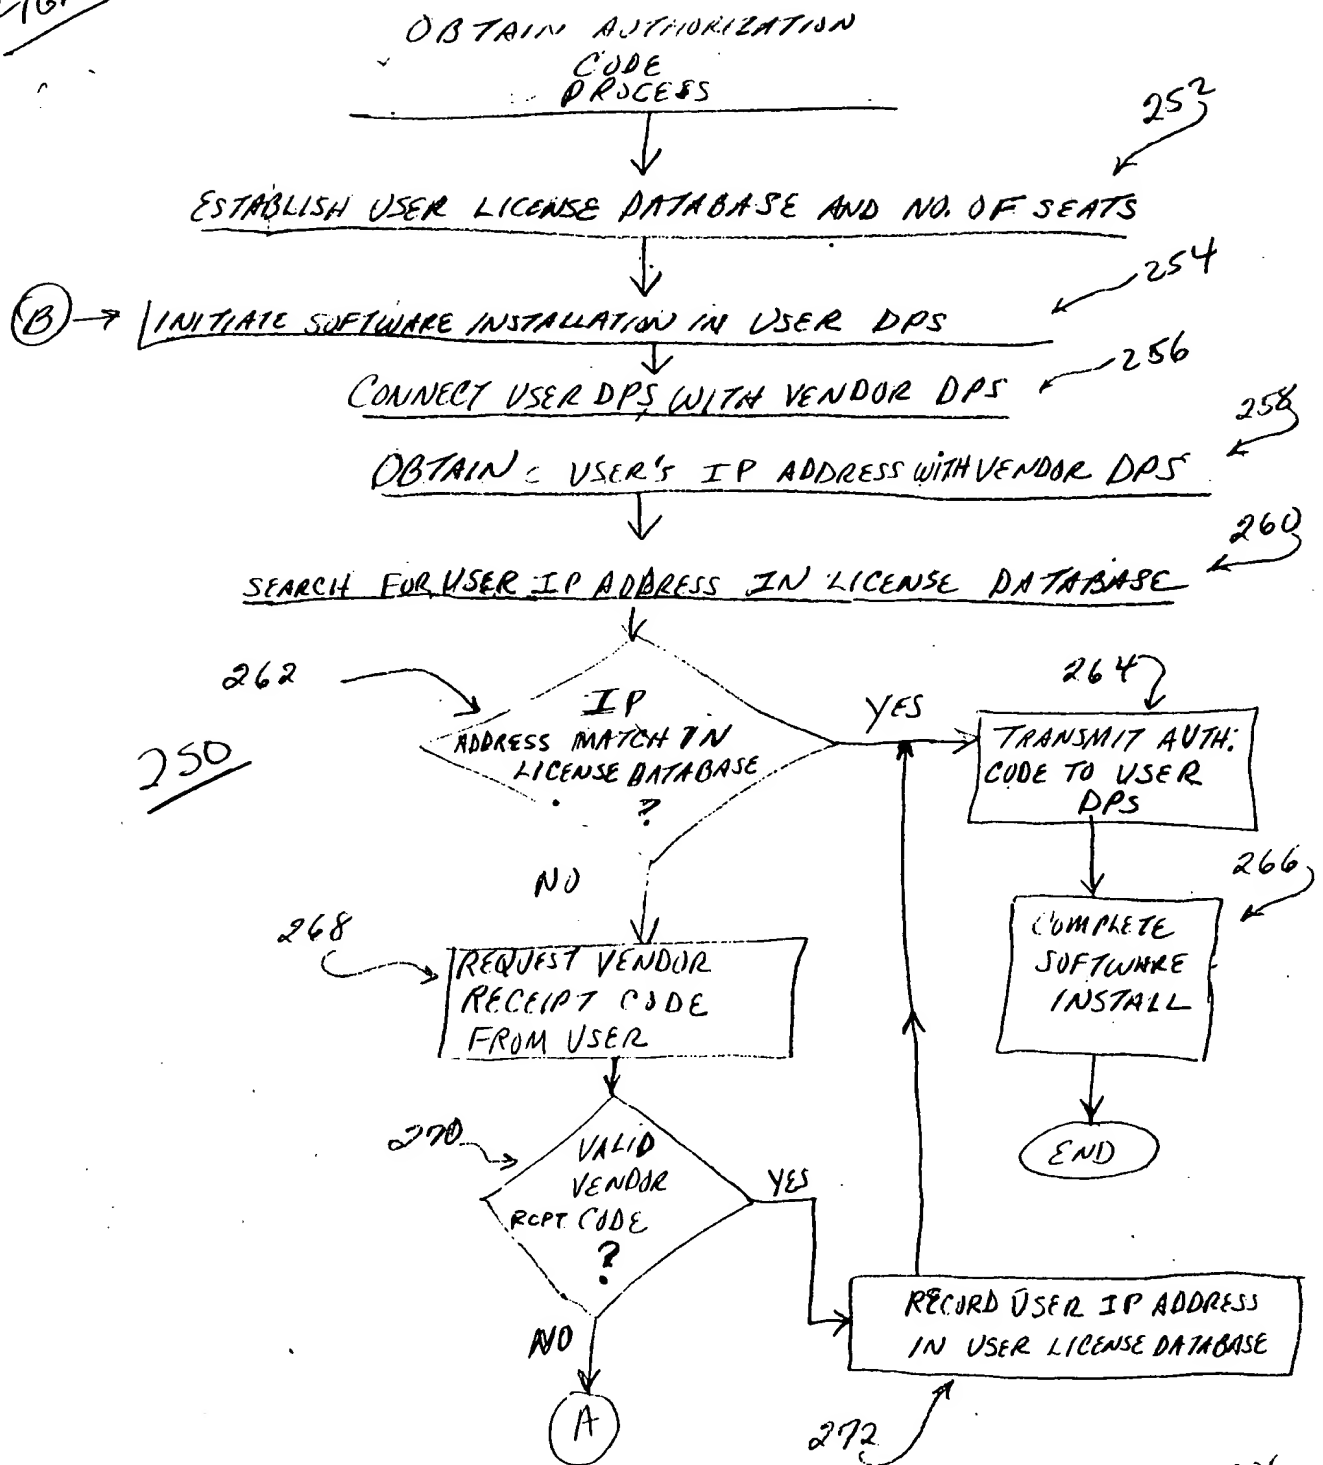 OBTAIN AUTHORIZATION
CODE
PROCESS
252
ESTABLISH USER LICENSE DATABASE AND NO. OF SEATS
254
B
INITIATE SOFTWARE INSTALLATION IN USER DPS
256
CONNECT USER DPS WITH VENDOR DPS
258
OBTAIN USER'S IP ADDRESS WITH VENDOR DPS
260
SEARCH FOR USER IP ADDRESS IN LICENSE DATABASE
262
IP
ADDRESS MATCH IN
LICENSE DATABASE
?
YES
264
TRANSMIT AUTH.
CODE TO USER
DPS
250
NO
266
COMPLETE
SOFTWARE
INSTALL
268
REQUEST VENDOR
RECEIPT CODE
FROM USER
END
270
VALID
VENDOR
RCPT. CODE
?
YES
RECORD USER IP ADDRESS
IN USER LICENSE DATABASE
NO
A
272